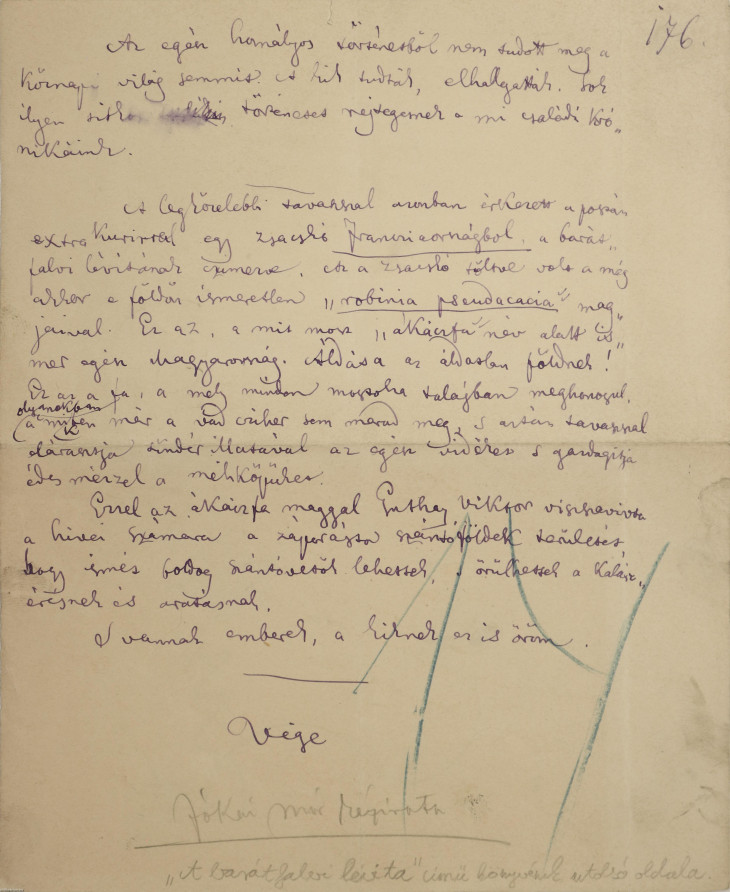 176.
Az egész homályos történetből nem tudott meg a
köznapi világ semmit. A kik tudták, elhallgatták. Sok
ilyen titkos történetet rejtegetnek a mi családi kró„
nikáink.
A legközelebbi tavasszal azonban érkezett a postán
extrakurirral egy zsacskó Francziaországból, a barát„
falvi lévitának czimezve. Az a zsacskó töltve volt a még
akkor e földön ismeretlen „robinia pseudacacia” mag„
jaival. Ez az, a mit most „ákáczfa” név alatt is„
mer egész Magyarország. Áldása az áldatlan földnek!
Ez az a fa, a mely minden mostoha talajban meghonosul,
olyanokban
a miken már a vad cziher sem marad meg, s aztán tavasszal
elárasztja tündér illatával az egész vidéket s gazdagitja
édes mézzel a méhköpüket.
Ezzel az ákáczfa maggal Guthay Viktor visszavivta
a hivei számára a záporásta szántóföldek területét
hogy ismét boldog szántóvetők lehessek, s örülhessek a kalász„
érésnek és aratásnak.
S vannak emberek, a kiknek ez is öröm.
Vége
Jókai Mór kézirata
„A barátfalvi lévita” című könyvének utolsó oldala.